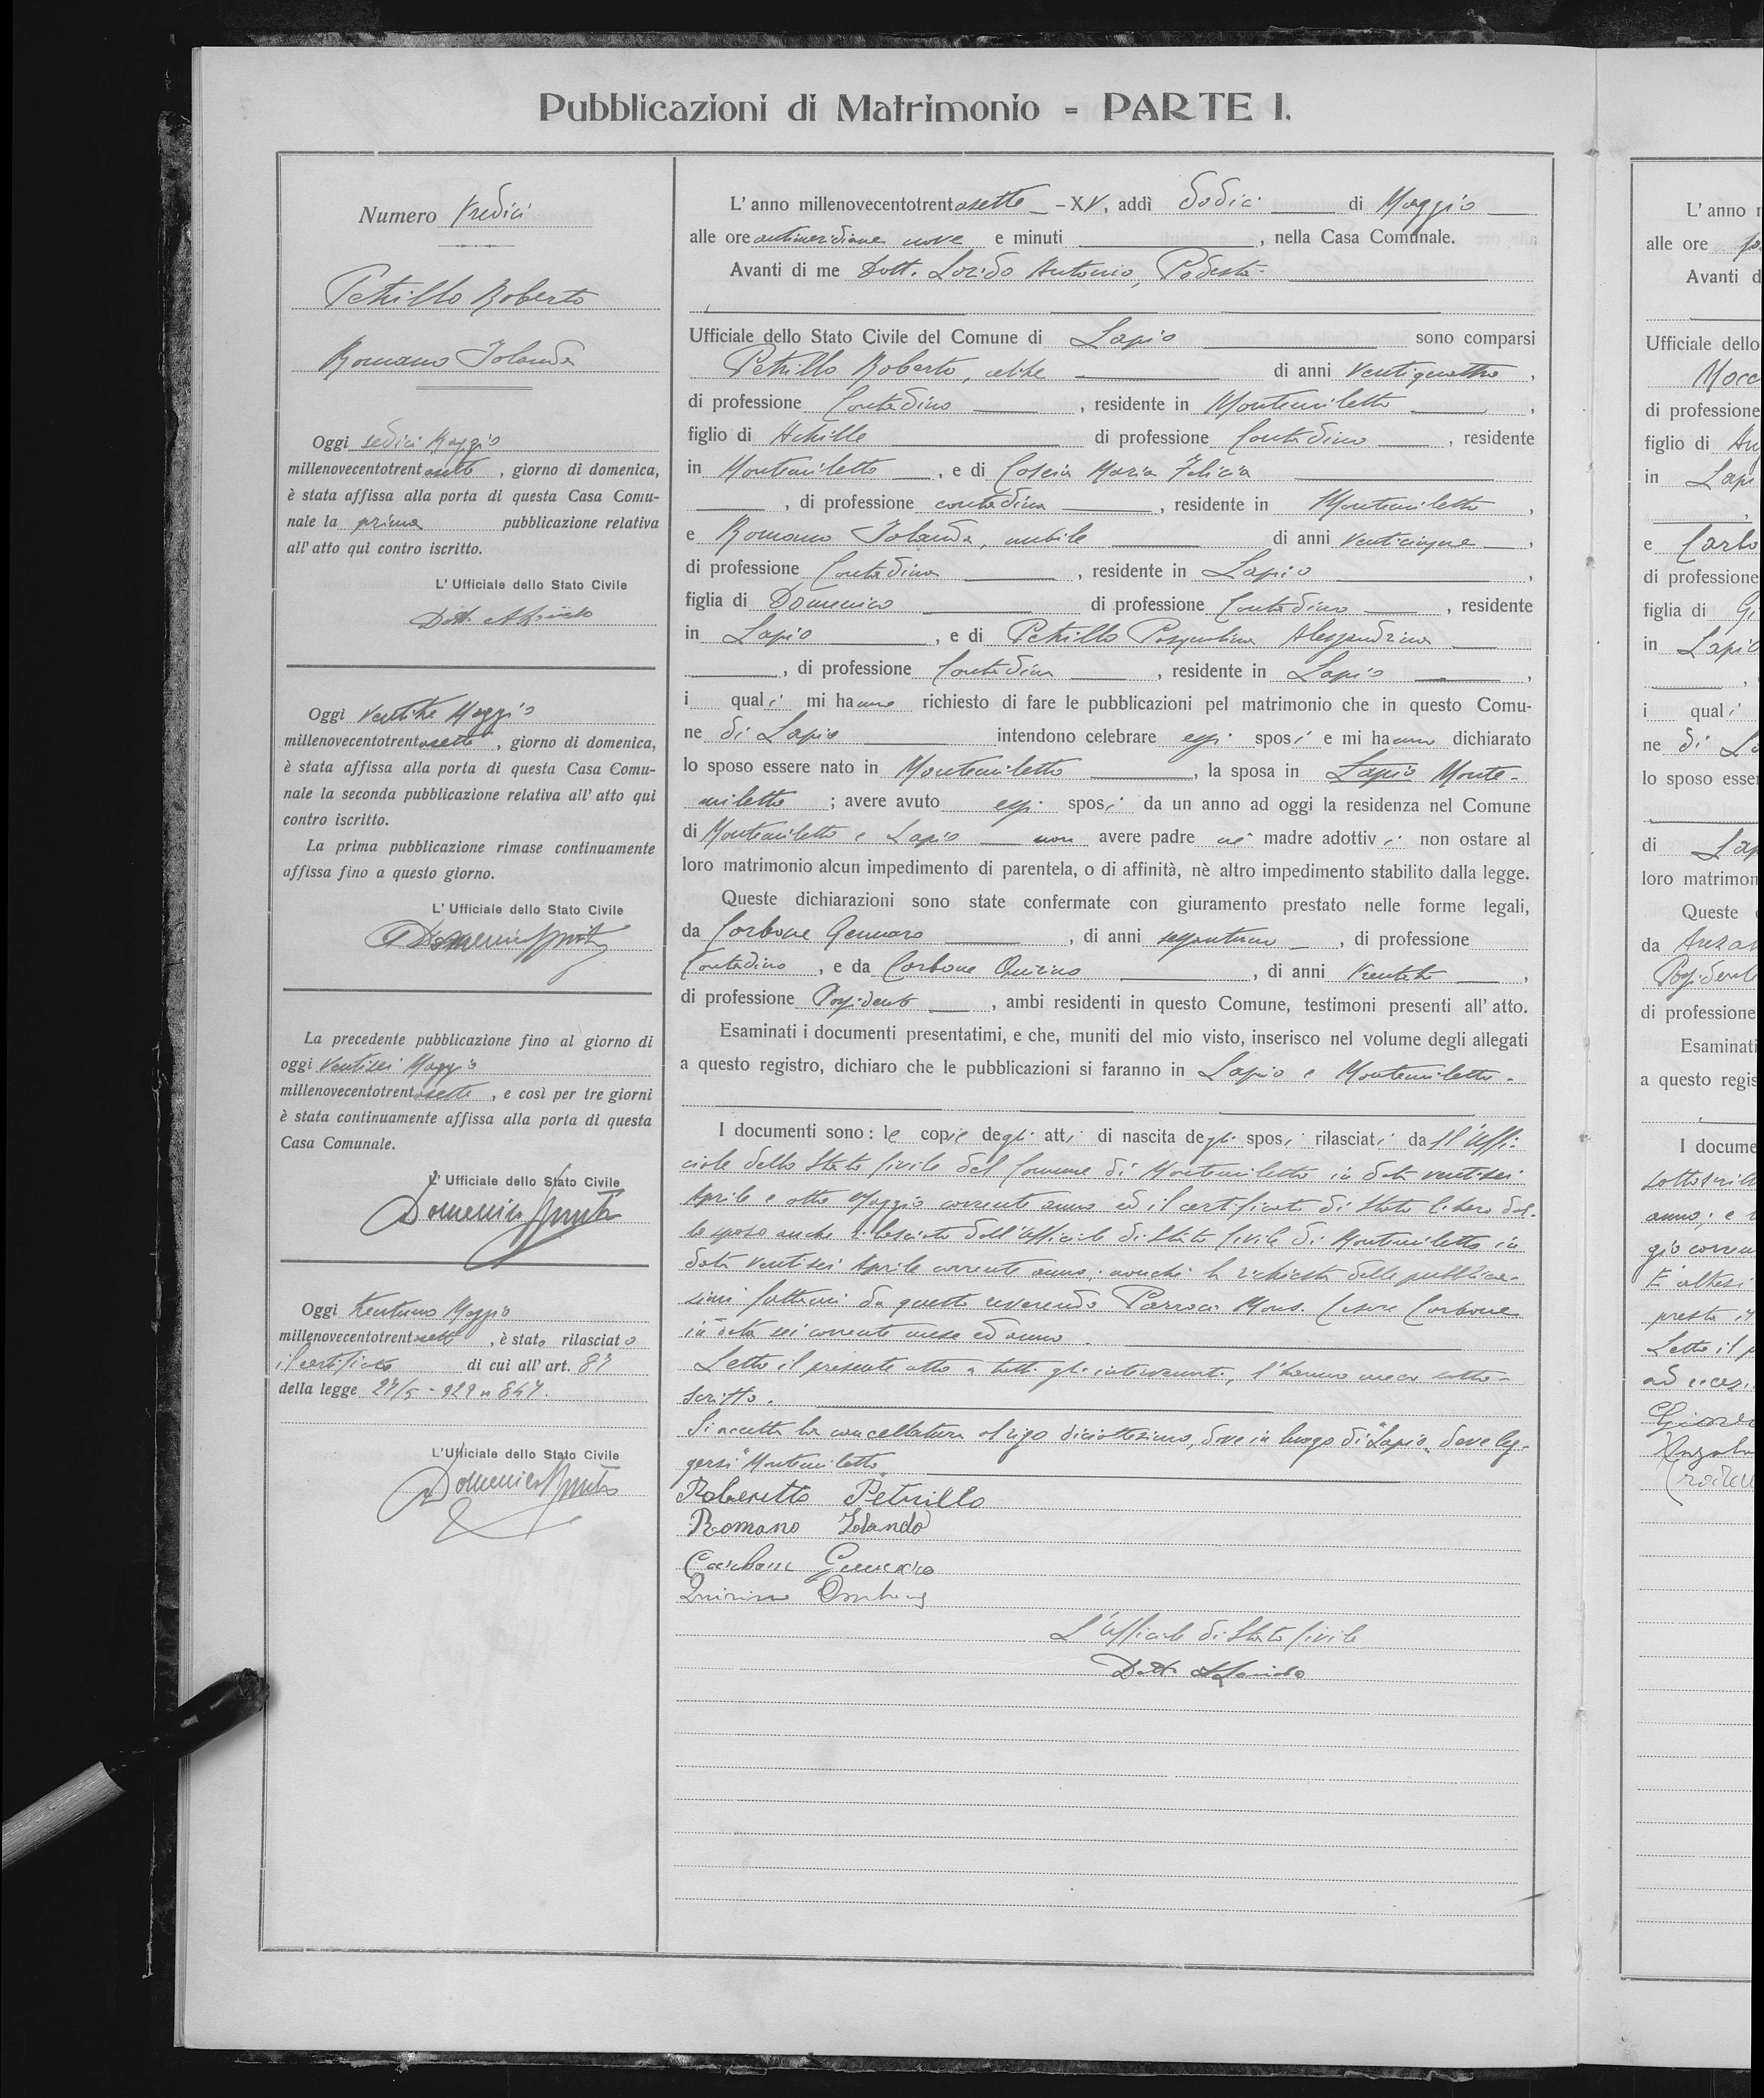 Pubblicazioni di Matrimonio - PARTE I.
Numero tredici
Petrillo Roberto
Romano Iolanda
Oggi sedici Maggio
millenovecentotrentasette, giorno di domenica,
è stata affissa alla porta di questa Casa Comu-
nale la prima pubblicazione relativa
all'atto quì contro iscritto.
L'Ufficiale dello Stato Civile
Dott.
Oggi ventitre Maggio
millenovecentotrentasette, giorno di domenica,
è stata affissa alla porta di questa Casa Comu-
nale la seconda pubblicazione relativa all'atto qui
contro iscritto.
La prima pubblicazione rimase continuamente
affissa fino a questo giorno.
L'Ufficiale dello Stato Civile
Domenico
La precedente pubblicazione fino al giorno di
oggi ventisei Maggio
millenovecentotrentasette, e così per tre giorni
è stata continuamente affissa alla porta di questa
Casa Comunale.
L'Ufficiale dello Stato Civile
Domenico
Oggi trentuno Maggio
millenovecentotrentasette, è stato rilasciato
il certificato di cui all'art. 87
della legge 27/5-929 n 847.
L'Ufficiale dello Stato Civile
Domenico
L'anno millenovecentotrentasette - XV, addì dodici di Maggio
alle ore antimeridiane nove e minuti , nella Casa Comunale.
Avanti di me Dott. Lorido Antonio, Podestà
Ufficiale dello Stato Civile del Comune di Lapio sono comparsi
Petrillo Roberto, celibe di anni ventiquattro,
di professione Contadino, residente in Montemiletto,
figlio di Achille di professione Contadino, residente
in Montemiletto, e di Coscia Maria Felicia
, di professione contadina, residente in Montemiletto,
e Romano Iolanda, nubile di anni venticinque,
di professione Contadina, residente in Lapio,
figlia di Domenico di professione Contadino, residente
in Lapio, e di Petrillo Pasqualina Alessandrina
, di professione Contadina, residente in Lapio,
i quali mi hanno richiesto di fare le pubblicazioni pel matrimonio che in questo Comu-
ne di Lapio intendono celebrare essi sposi e mi hanno dichiarato
lo sposo essere nato in Montemiletto, la sposa in Lapio Monte-
miletto; avere avuto essi sposi da un anno ad oggi la residenza nel Comune
di Montemiletto e Lapio non avere padre nè madre adottivi non ostare al
loro matrimonio alcun impedimento di parentela, o di affinità, nè altro impedimento stabilito dalla legge.
Queste dichiarazioni sono state confermate con giuramento prestato nelle forme legali,
da Carbone Gennaro, di anni sessantuno, di professione
Contadino, e da Carbone Quirino, di anni trentatre,
di professione Possidente, ambi residenti in questo Comune, testimoni presenti all'atto.
Esaminati i documenti presentatimi, e che, muniti del mio visto, inserisco nel volume degli allegati
a questo registro, dichiaro che le pubblicazioni si faranno in Lapio e Montemiletto.
I documenti sono: le copie degli atti di nascita degli sposi rilasciati dall'Uffi-
ciale dello Stato Civile del Comune di Montemiletto in data ventisei
Aprile e otto Maggio corrente anno ed il certificato di Stato libero del-
lo sposo anche rilasciato dall'Ufficiale di Stato Civile di Montemiletto in
data ventisei Aprile corrente anno; nonchè la richiesta delle pubblica-
zioni fattami da questo reverendo Parroco Mons. Cesare Carbone
in data sei corrente mese ed anno.
Letto il presente atto a tutti gli intervenuti, l'hanno meco sotto-
scritto.
Si accetta la cancellatura al rigo diciottesimo, dove in luogo di "Lapio" deve leg-
gersi "Montemiletto"
Roberetto Petrillo
Romano Iolanda
Carbone Gennaro
Quirino
L'Ufficiale di Stato Civile
Dott. A Lorido
L'anno
alle ore
Avanti d
Ufficiale dello
Mocc
di professione
figlio di
in Lapi
e Carbo
di professione
figlia di
in Lapio
i quali
ne di
lo sposo esser
di Lap
loro matrimon
Queste
da
Possidente
di professione
Esaminati
a questo regis
I docume
sottoscritt
anno; e
gio corren
presto
Letto il